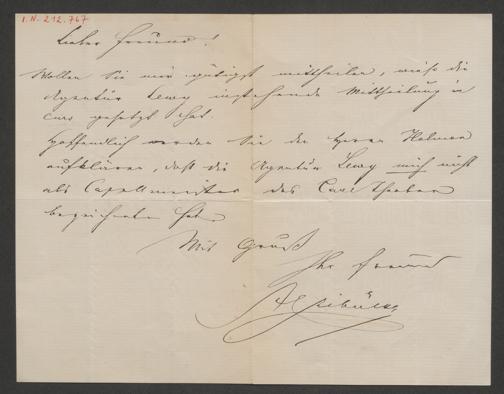 I.N. 212.767
Lieber Freund!
Wollen Sie mir gütigst mittheilen, wie die
Agentur Lewy umstehende Mittheilung in
Curs gesetzt hat.
Hoffentlich werden Sie den Herrn
aufklären, daß die Agentur Lewy mich nicht
als Capellmeister des Carl Theaters
bezeichnete hat.
Mit Gruß
Ihr Freund